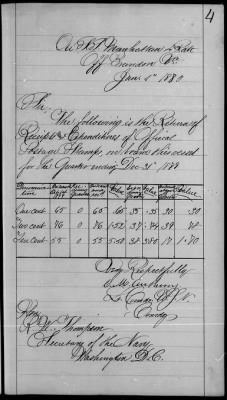 4
U.S.S. Manhattan 4th Rate
Off Brandon Va
Jan. 1st 1880
Sir
The following is the Return of
Receipts & Expenditures of Official
Postage Stamps, on board this vessel
for the Quarter ending Dec 31st 1879
One cent 65 0 65 .65 35 .35 30 .30
Two cent 76 0 76 1.52 37 .74 39 .78
Ten cent 55 0 55 5.50 38 3.80 17 1.70
Very Respectfully
Lt. Comdr U.S.N.
Comdg
Hon.
R. W. Thompson
Secretary of the Navy
Washington D.C.